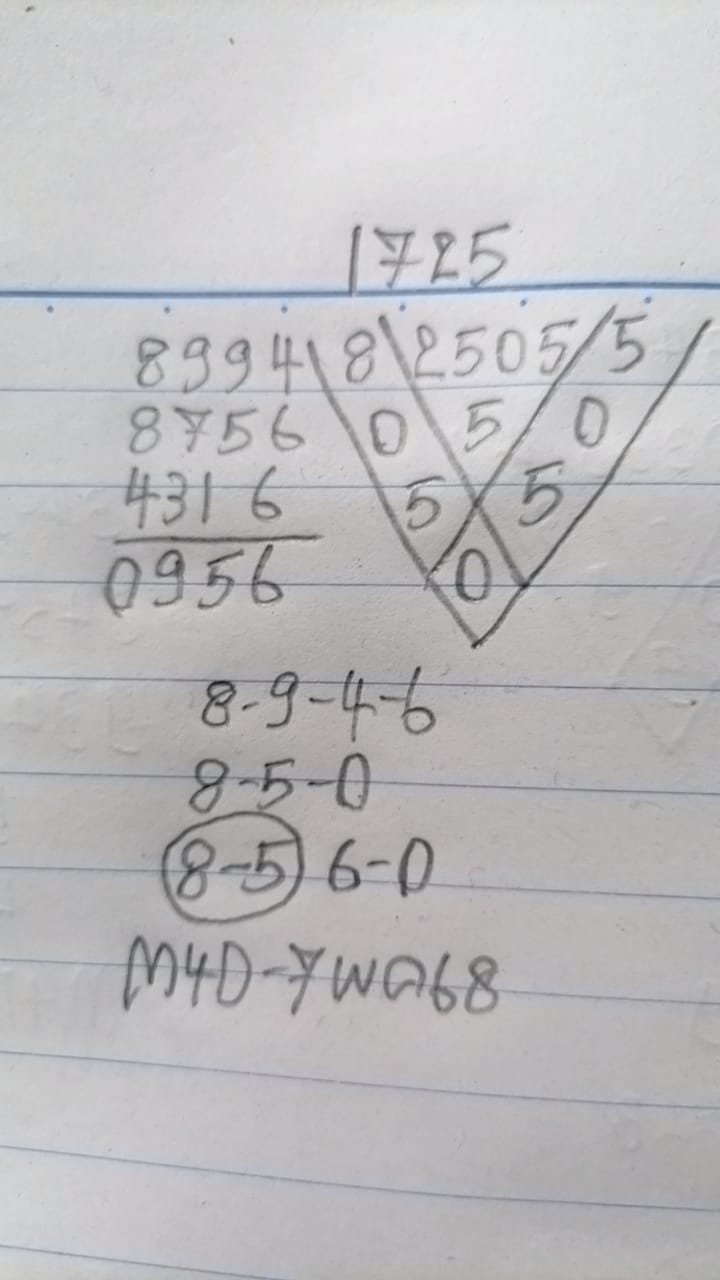 1725
8994 8 2505 5
8756 0 5 0
4316 5 5
0956 0
8-9-4-6
8-5-0
8-5 6-0